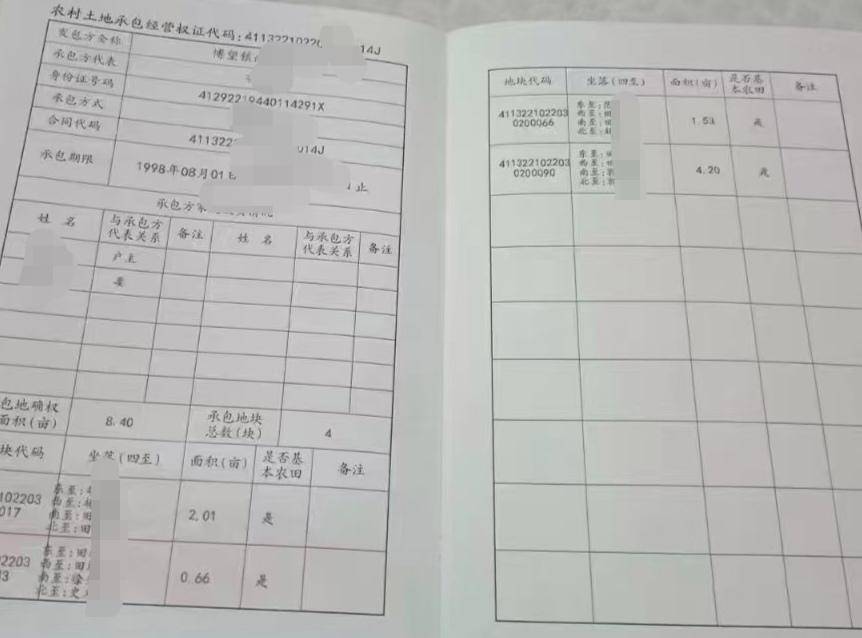 农村土地承包经营权证代码:4113221022014J
发包方全称 博望镇
承包方代表
身份证号码 41292219440114291X
承包方式
合同代码 411322 014J
承包期限 1998年08月01 止
承包方家
姓 名 与承包方代表关系 备注 姓 名 与承包方代表关系 备注
户主
妻
包地确权面积(亩) 8.40 承包地块总数(块) 4
块代码 坐落(四至) 面积(亩) 是否基本农田 备注
102203
017
东至:
西至:
南至:田
北至:田
2.01 是
2203
3
东至:田
西至:田
南至:徐
北至:史
0.66 是
地块代码 坐落(四至) 面积(亩) 是否基本农田 备注
411322102203
0200066
东至:
西至:田
南至:田
北至:
1.53 是
411322102203
0200090
东至:田
西至:田
南至:
北至:
4.20 是